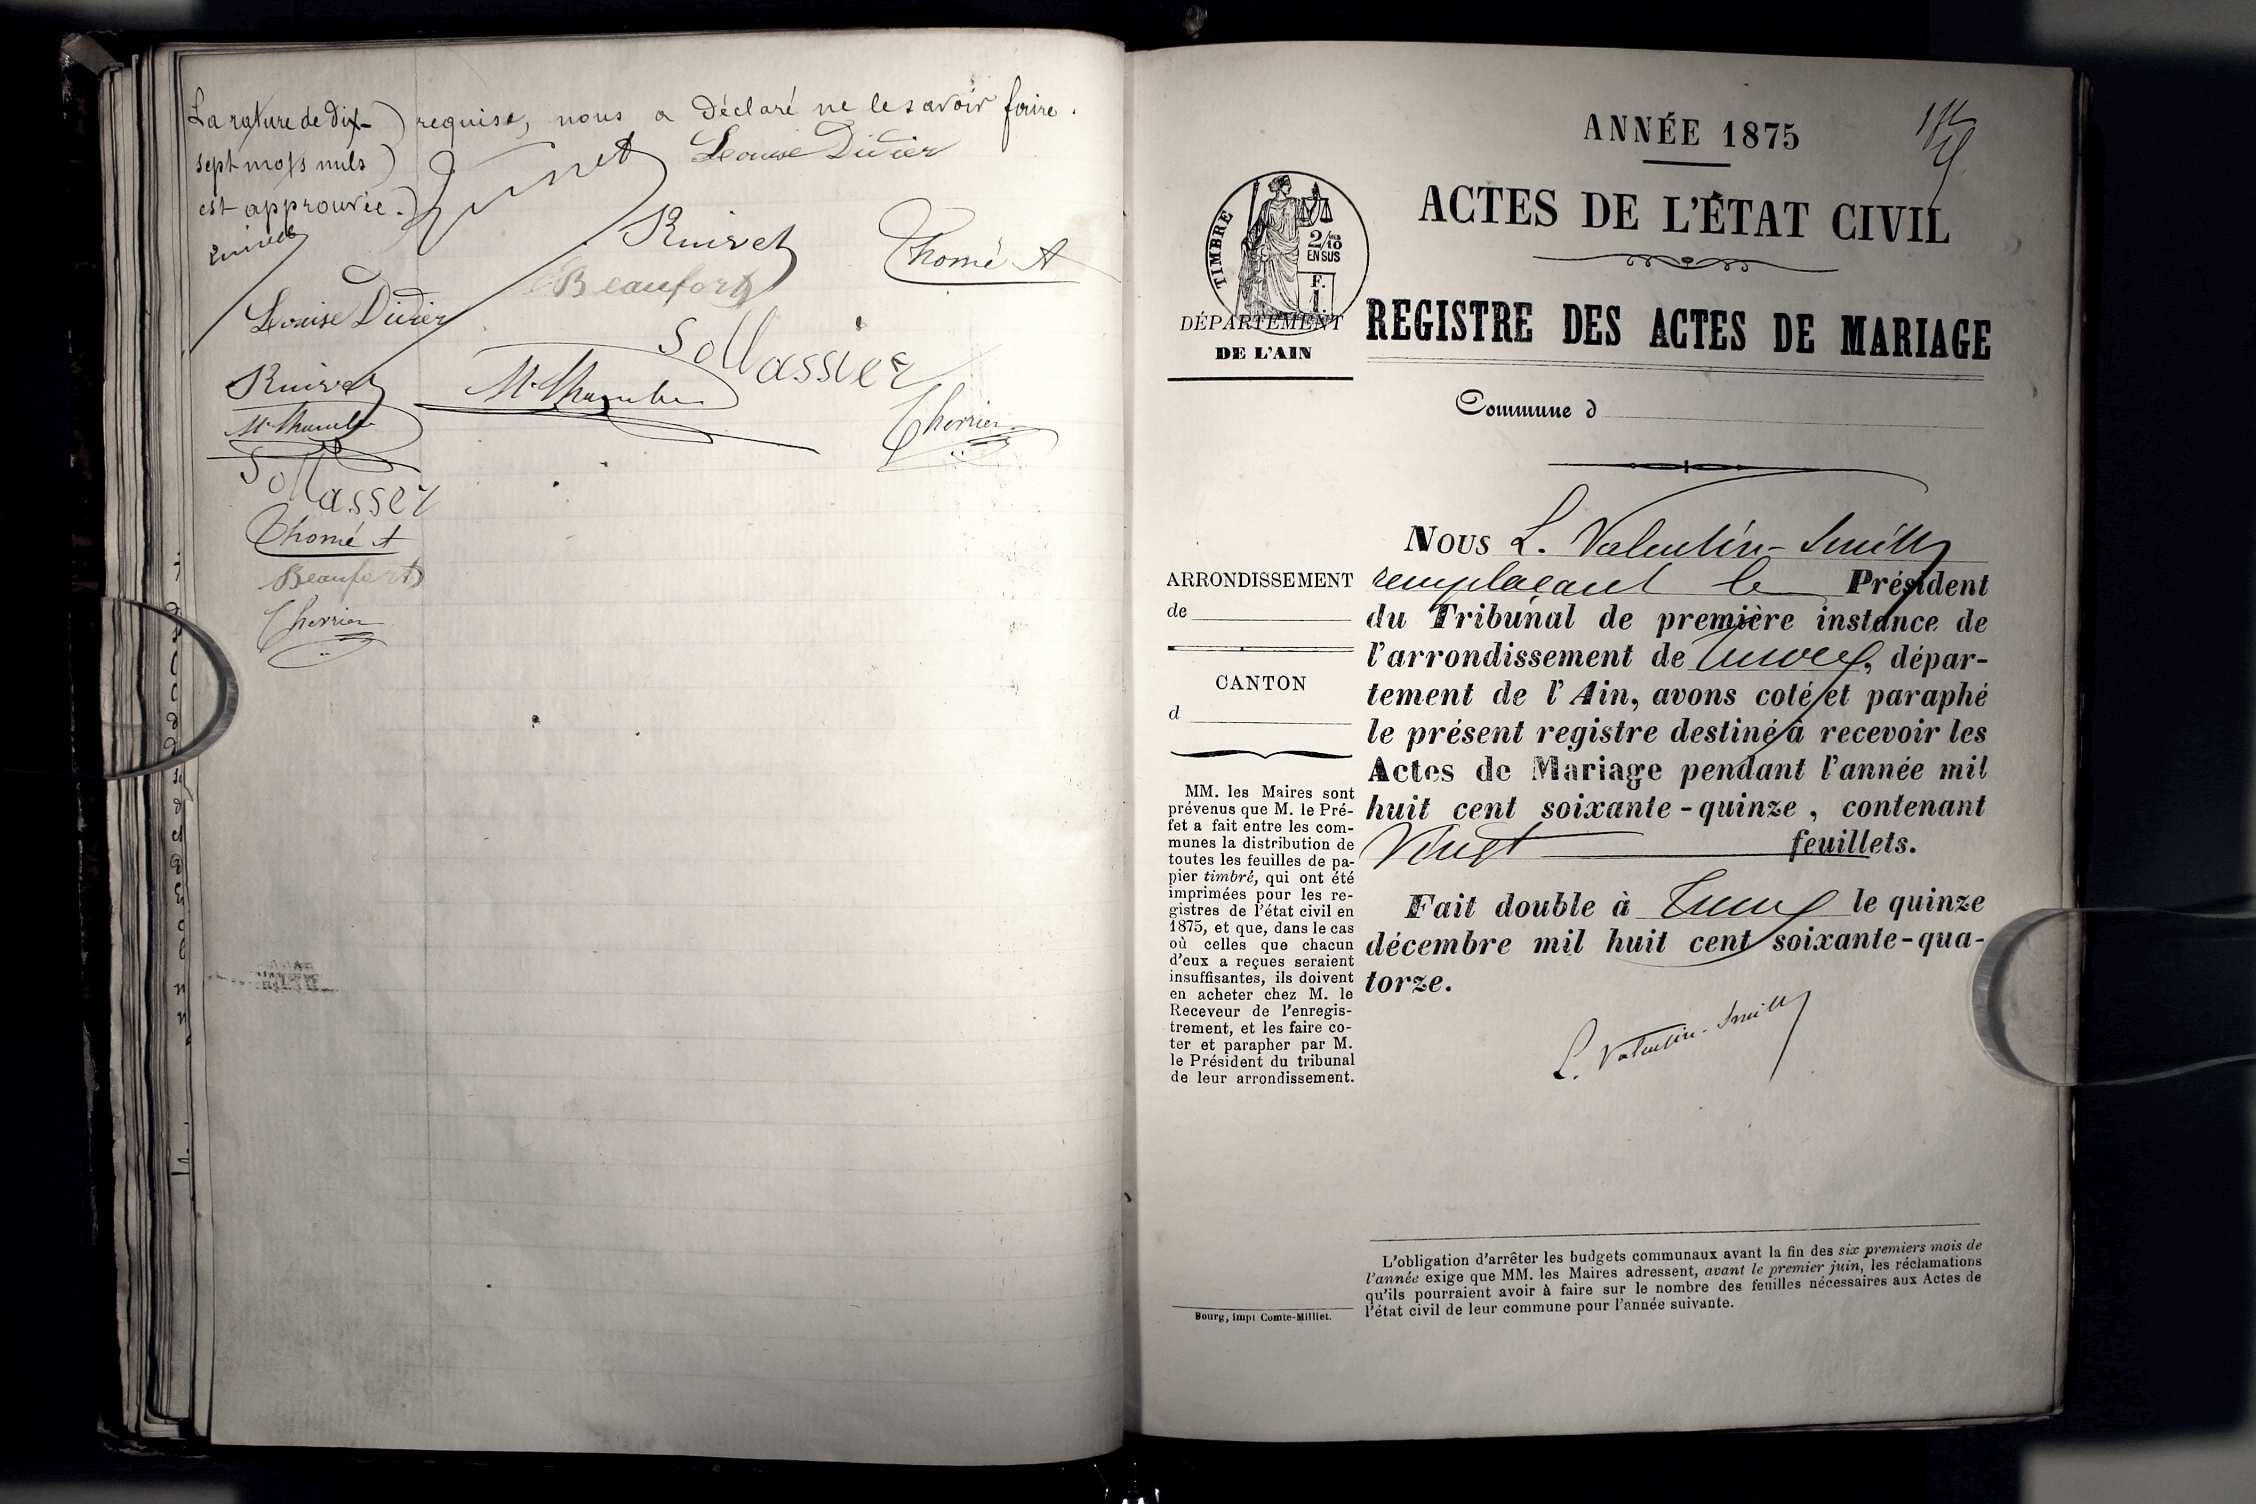 La rature de dix-
sept mots nuls
est approuvée.
requise, nous a déclaré ne le savoir faire.
Louise Didier
Ruivet
Thomé A
Beaufort
Louise Didier
Sollassier
Ruivet
Cherrier
Sollasser
Thomé A
Beaufort
Cherrier
ANNÉE 1875
ACTES DE L'ÉTAT CIVIL
TIMBRE
2/10
EN SUS
F.
1.
DÉPARTEMENT
DE L'AIN
REGISTRE DES ACTES DE MARIAGE
Commune d
ARRONDISSEMENT
de
CANTON
d
MM. les Maires sont
prévenus que M. le Pré-
fet a fait entre les com-
munes la distribution de
toutes les feuilles de pa-
pier timbré, qui ont été
imprimées pour les re-
gistres de l'état civil en
1875, et que, dans le cas
où celles que chacun
d'eux a reçues seraient
insuffisantes, ils doivent
en acheter chez M. le
Receveur de l'enregis-
trement, et les faire co-
ter et parapher par M.
le Président du tribunal
de leur arrondissement.
Nous L. Valentin-Smith
remplaçant le Président
du Tribunal de première instance de
l'arrondissement de Trévoux, dépar-
tement de l'Ain, avons coté et paraphé
le présent registre destiné à recevoir les
Actes de Mariage pendant l'année mil
huit cent soixante-quinze, contenant
Vingt feuillets.
Fait double à Trévoux le quinze
décembre mil huit cent soixante-qua-
torze.
L. Valentin-Smith
L'obligation d'arrêter les budgets communaux avant la fin des six premiers mois de
l'année exige que MM. les Maires adressent, avant le premier juin, les réclamations
qu'ils pourraient avoir à faire sur le nombre des feuilles nécessaires aux Actes de
l'état civil de leur commune pour l'année suivante.
Bourg, impr Comte-Milliet.